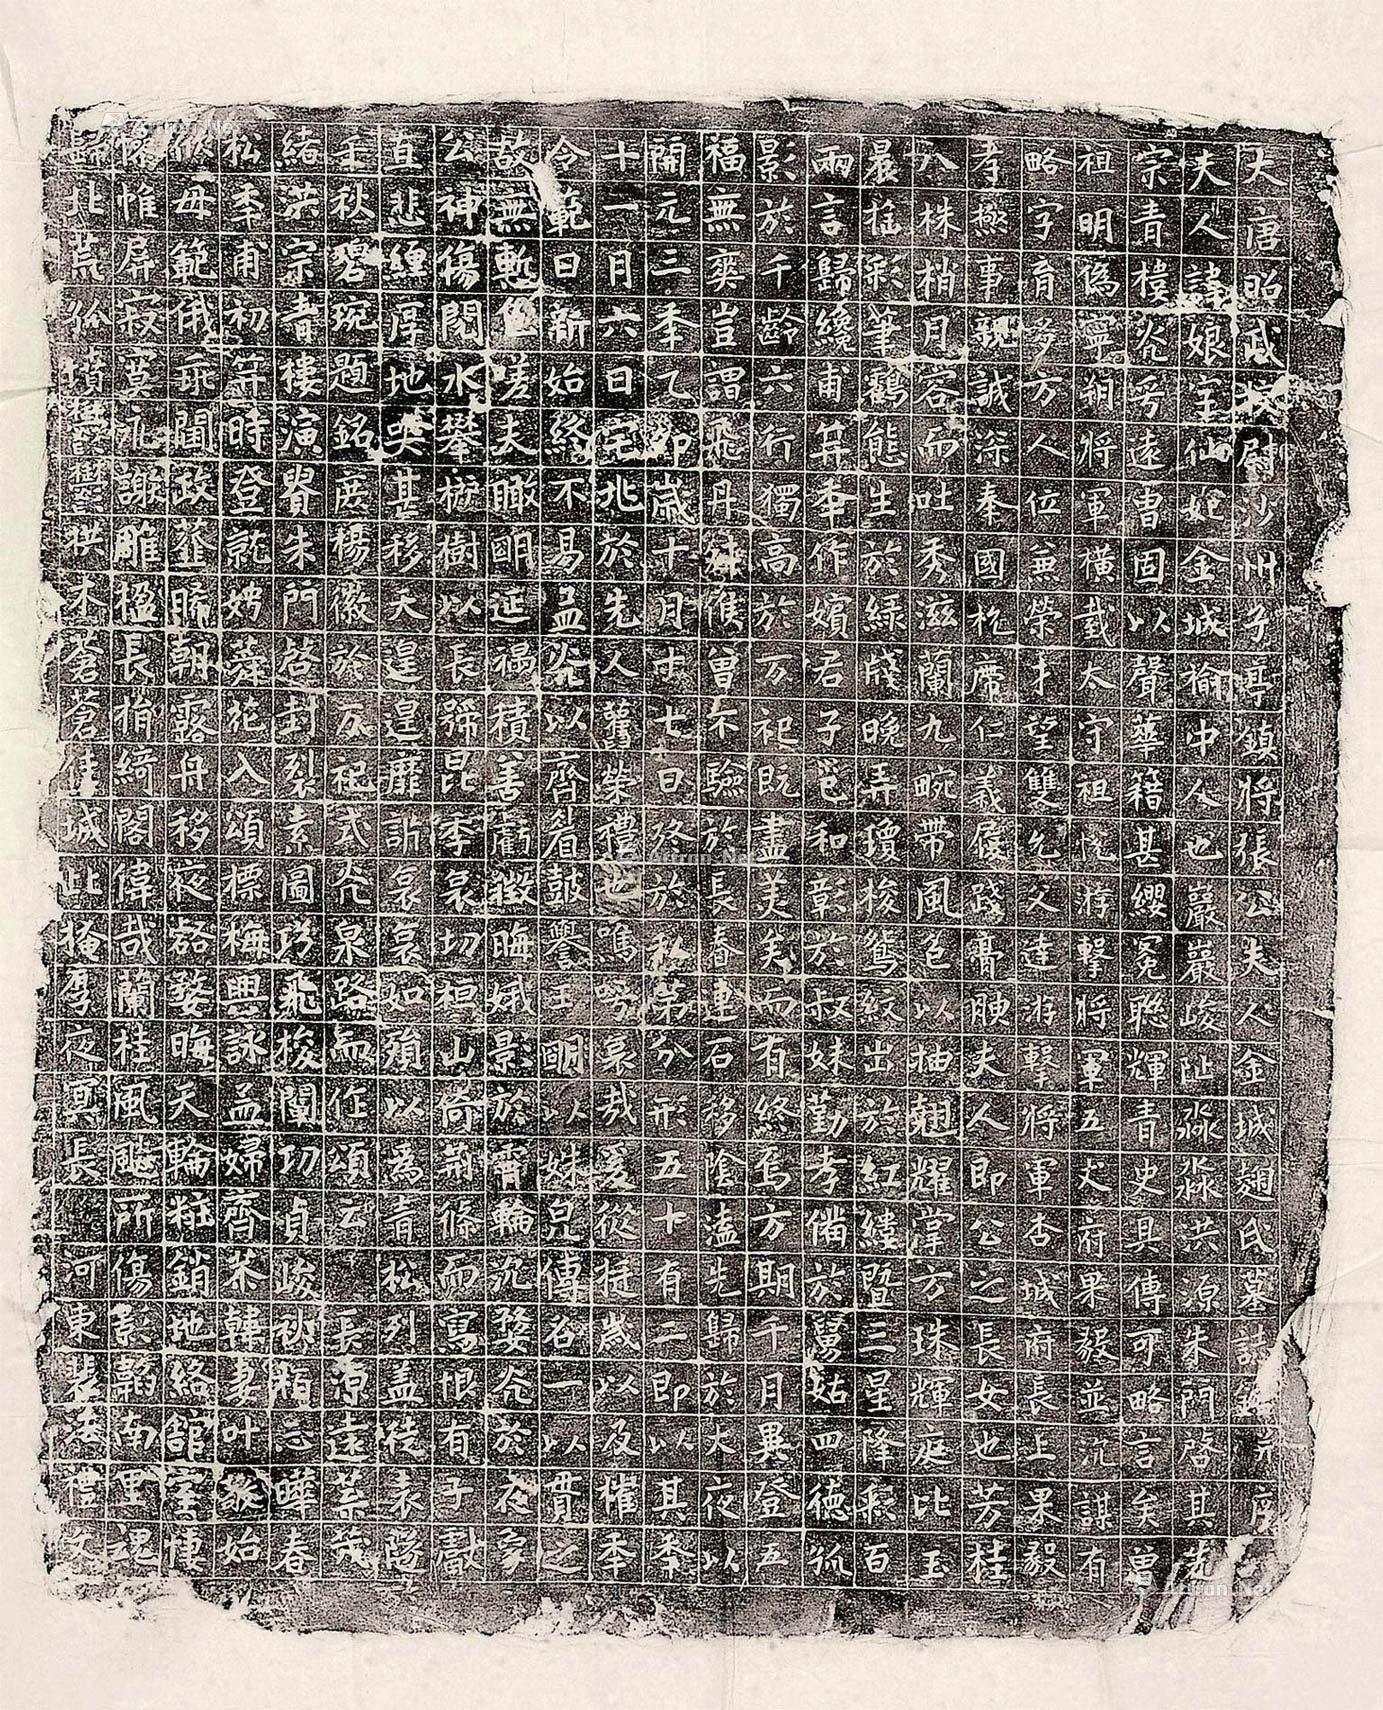 大唐昭武校尉沙州子亭鎮將張公夫人金城麴氏墓誌銘并序
夫人諱娘字仙妃金城榆中人也巖巖峻阯淼淼洪源朱門啓其先
宗青樓光乎遠胄固以聲華籍甚纓冕聯輝青史具傳可略言矣曾
祖明偽寧朔將軍橫截太守祖悦游擊將軍五丈府果毅並沉謀有
略字育多方人位兼榮才望雙允父達游擊將軍杏城府長上果毅
孝燕事親誠深奉國枕席仁義履踐膏腴夫人即公之長女也芳桂
八株梢月容而吐秀滋蘭九畹帶風色以抽翹耀掌方珠輝庭比玉
晨搖彩筆鶴態生於綠牋晚弄瓊梭鴛紋出於紅縷暨三星降彩百
兩言歸纔甫笄年作嬪君子邕和彰於叔妹勤孝備於舅姑四德孤
影於千齡六行獨高於万祀既盡美矣而有終焉方期千月異登五
福無爽豈謂飛丹 候曾不驗於長春連石移陰溘先歸於大夜以
開元三年乙卯歲十月廿七日終於私第分形五十有二即以其年
十一月六日宅兆於先人舊塋禮也嗚呼哀哉爰從提歲以及權年
令範日新始終不易孟光以齊眉鼓譽王明以妹皃傳名一以貫之
故無慙色嗟夫瞰明延禍積善虧徵晦娥景於霄輪沉婺光於夜象
公神傷閱水攀樹以長號昆季哀切桓山荷荊條而寫恨有子獻
直悲纏厚地巨甚移天遑遑靡訴哀哀如殯以為青松列蓋徒表隧
壬秋碧琬題銘庶揚徽於万祀式光泉路而作頌云 長源遠系我
緒洪宗青樓演胄朱門啓封裂素圖巧飛梭闡功貞峻秋 志曄春
松季甫初笄時登就娉蕣花入頌標梅興詠孟婦齊 韓妻叶 始
依母範俄乖閫政薤晞朝露舟移夜壑婺晦天輪粧銷地絡館空悽
帷屏寂寞永謝雕楹長捐綺閣偉哉蘭桂風飈所傷影翳南里魂
歸北荒 墳 拱木蒼蒼佳城此掩厚夜冥長 河東裴 禮文